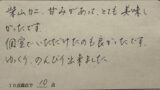 柴山カニ、甘みがあって、とても美味し
かったです。
個室でいただけたのも良かったです。
ゆっくり、のんびり出来ました。
10点満点中 10 点